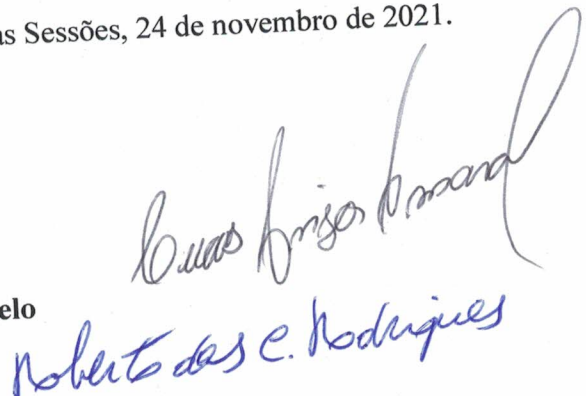 as Sessões, 24 de novembro de 2021.
elo
Roberto das C. Rodrigues